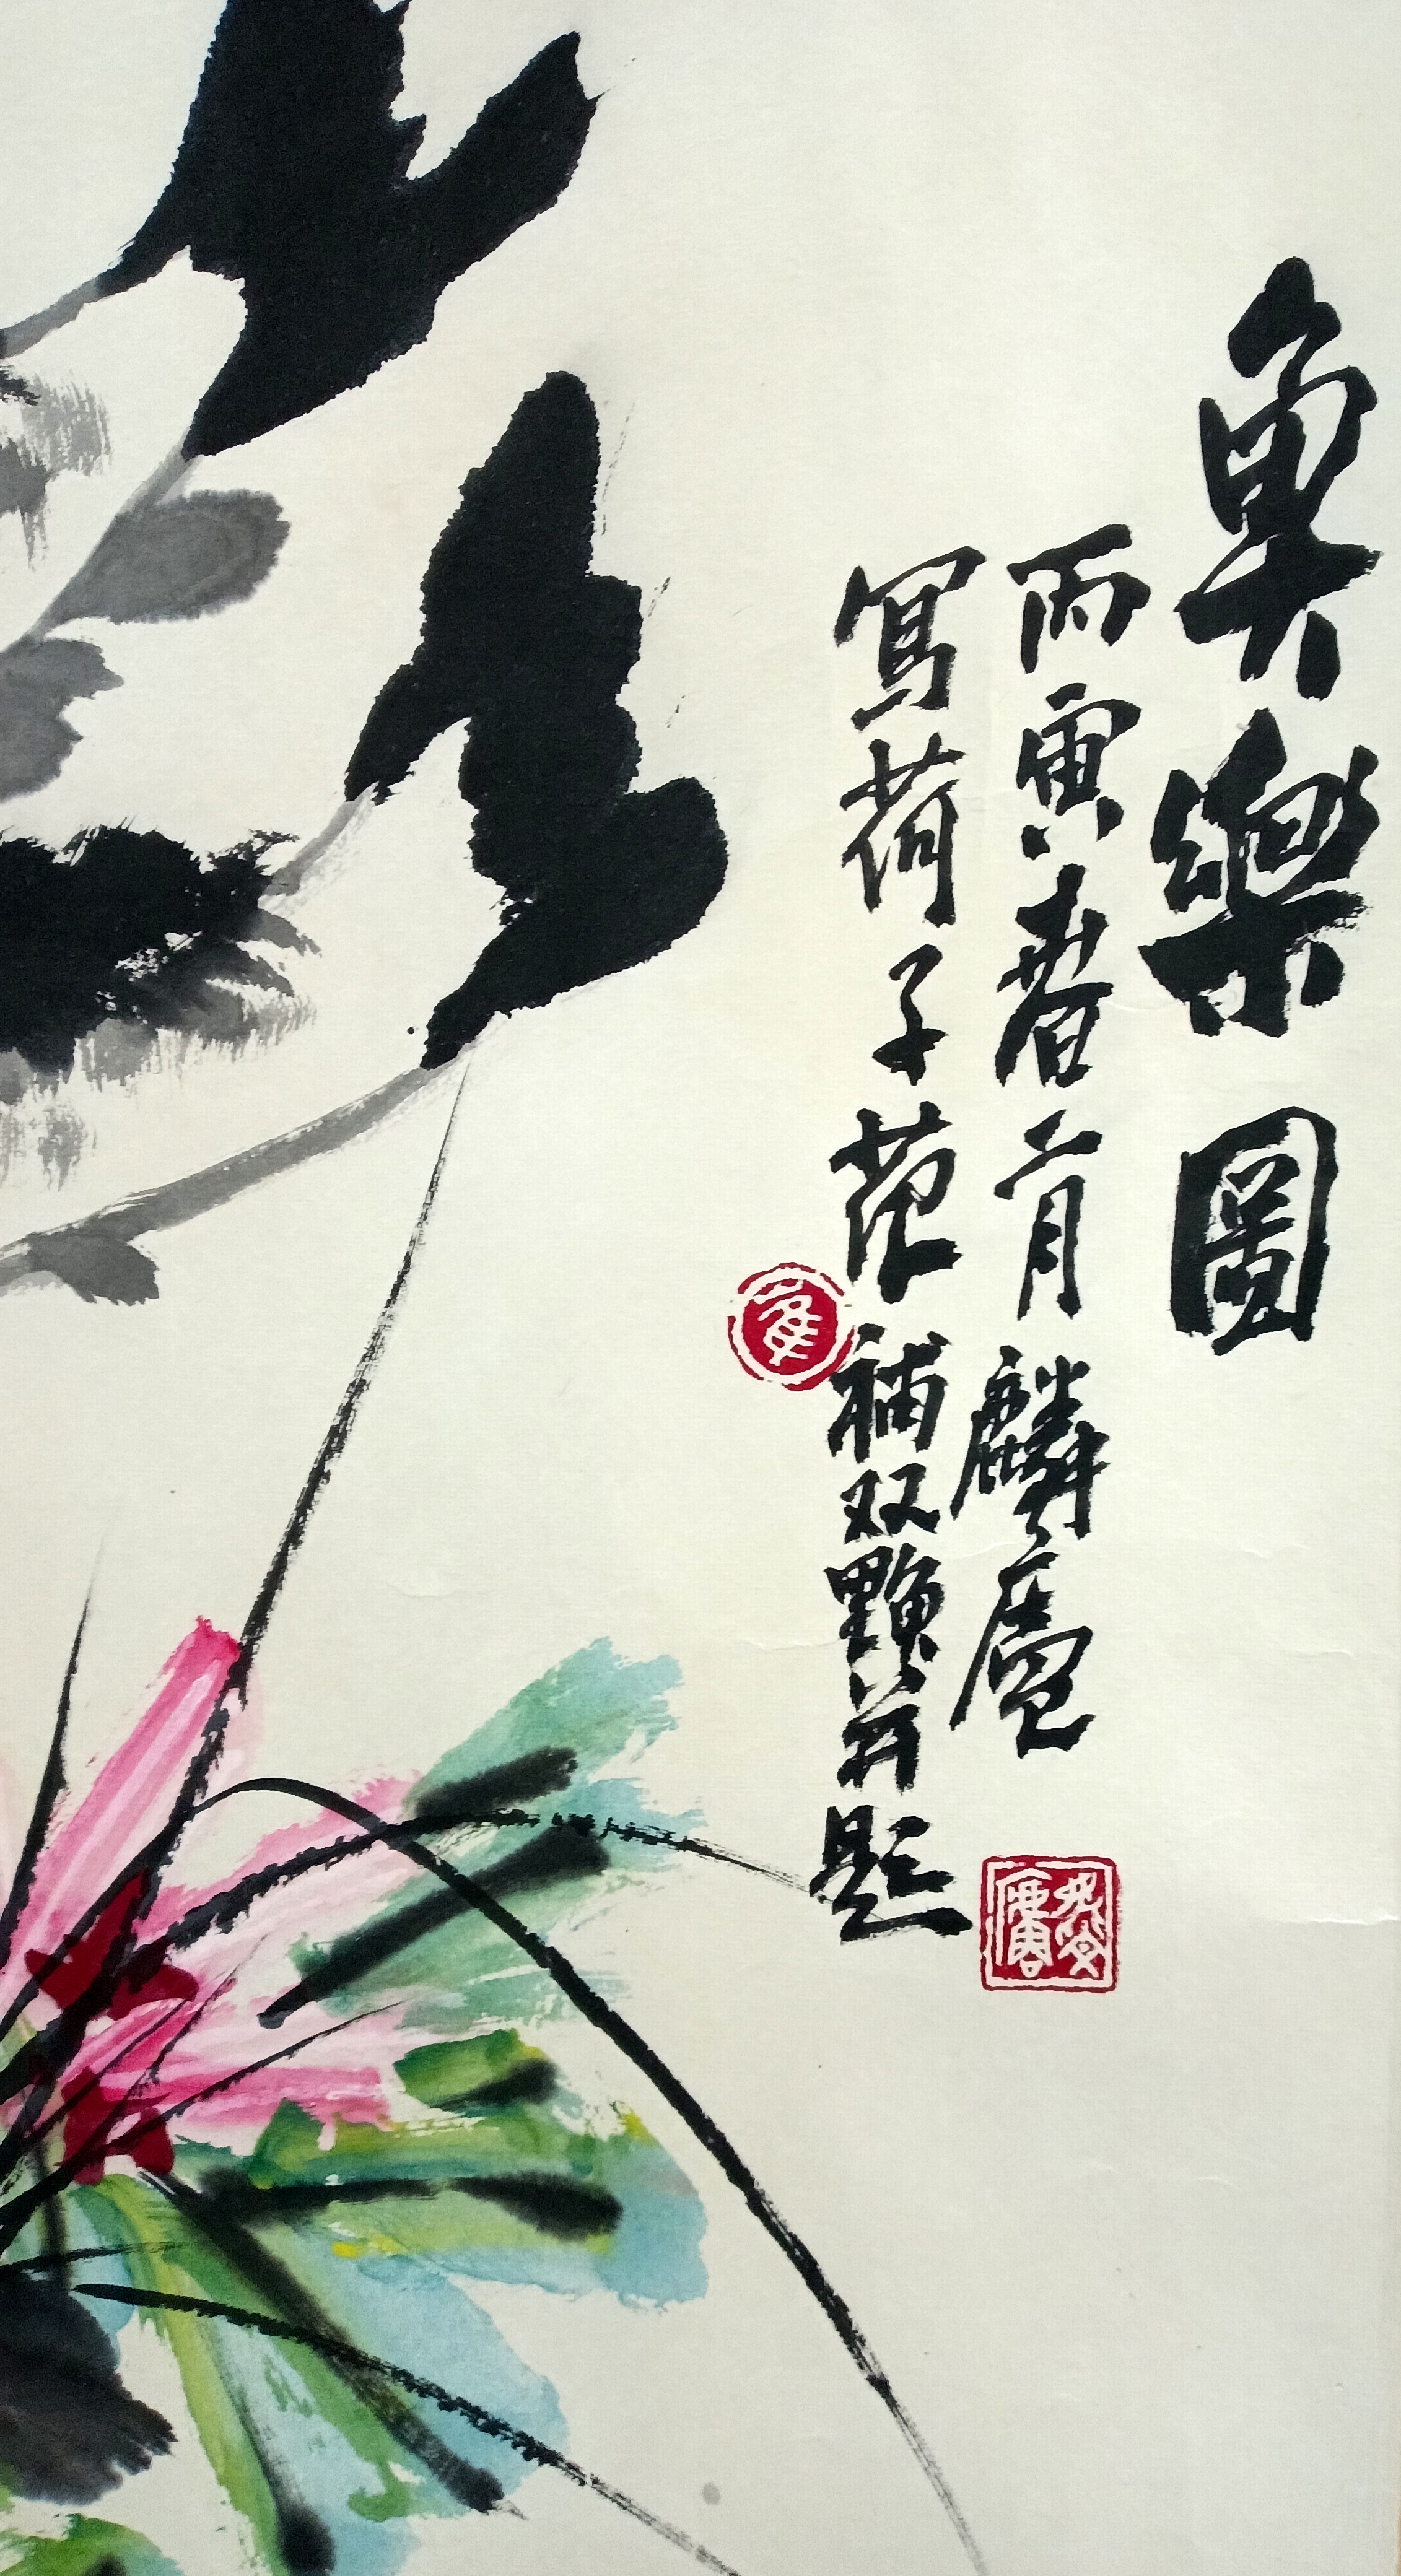 魚樂圖
丙寅春二月麟廬
寫荷子范補双鯉并題